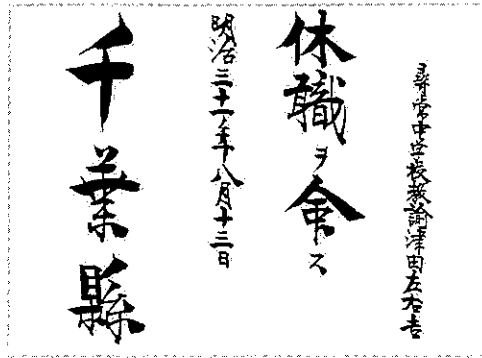 尋常中学校教諭津田左右吉
休職ヲ命ス
明治三十一年八月十三日
千葉縣